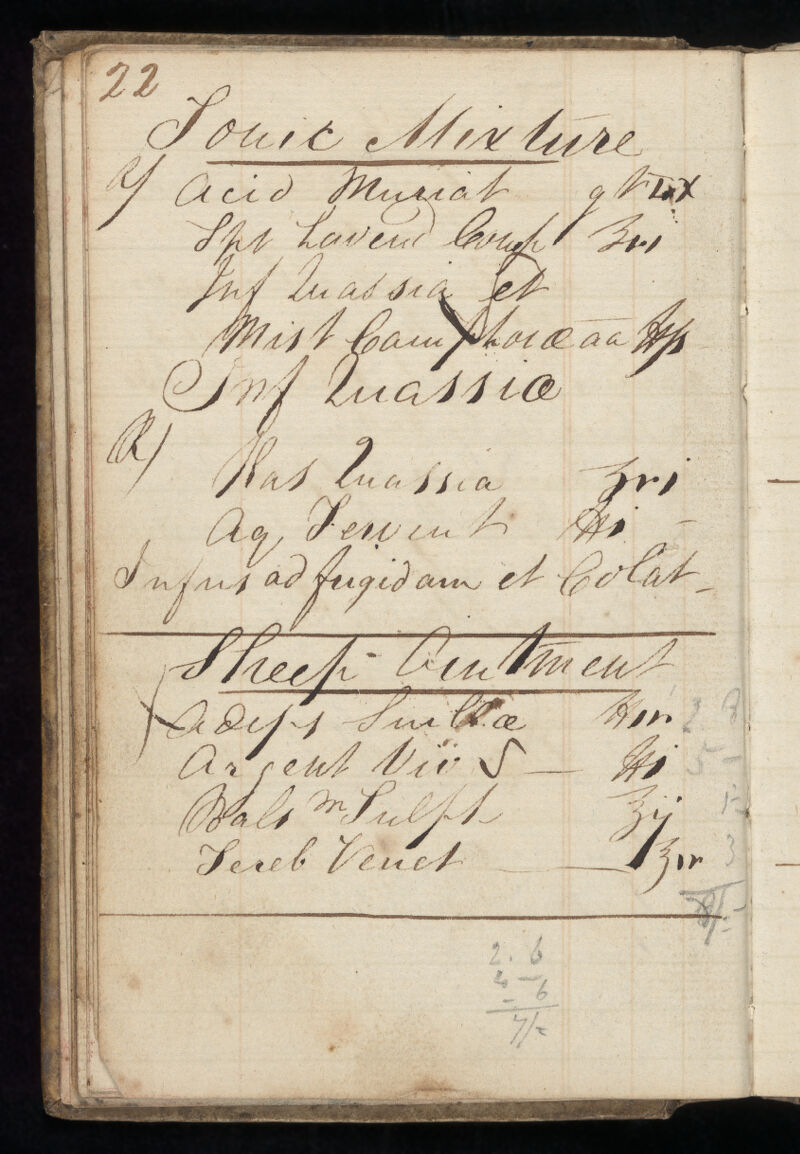 22
Tonic Mixture
R/ Acid Muriat gtt Lx
Spt Lavend Comp ʒvi
Inf Quassia et
Mist Camphoræ aa ℔ſs
Inf Quassiæ
R/
Ras Quassia ʒvi
Aq Fervent ℔i
Infus ad frigidam et Colat
Sheep Ointment
Adeps Suillæ
Argent Viv ℔i
Bals Sulph
Tereb Venet
2. 6
6
7/-